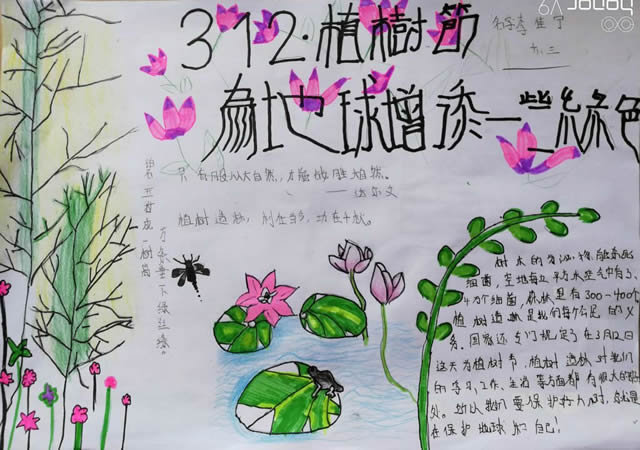 312·植樹節
為地球增添一些绿色
只有服从大自然,才能战胜大自然。
——达尔文
植树造林,利在当今,功在千秋。
碧玉妆成一树高
万条垂下绿丝绦。
树木的分泌物能杀死
细菌,空地每立平方米空气中有3~
4万个细菌,森林里有300~400个
植树造林是我们每个公民的义
务。国家还专门规定了在3月12日
这天为植树节,植树造林对我们
的学习、工作、生活等方面都有很大的好
处。所以我们要保护好小树,就是
在保护地球和自己!